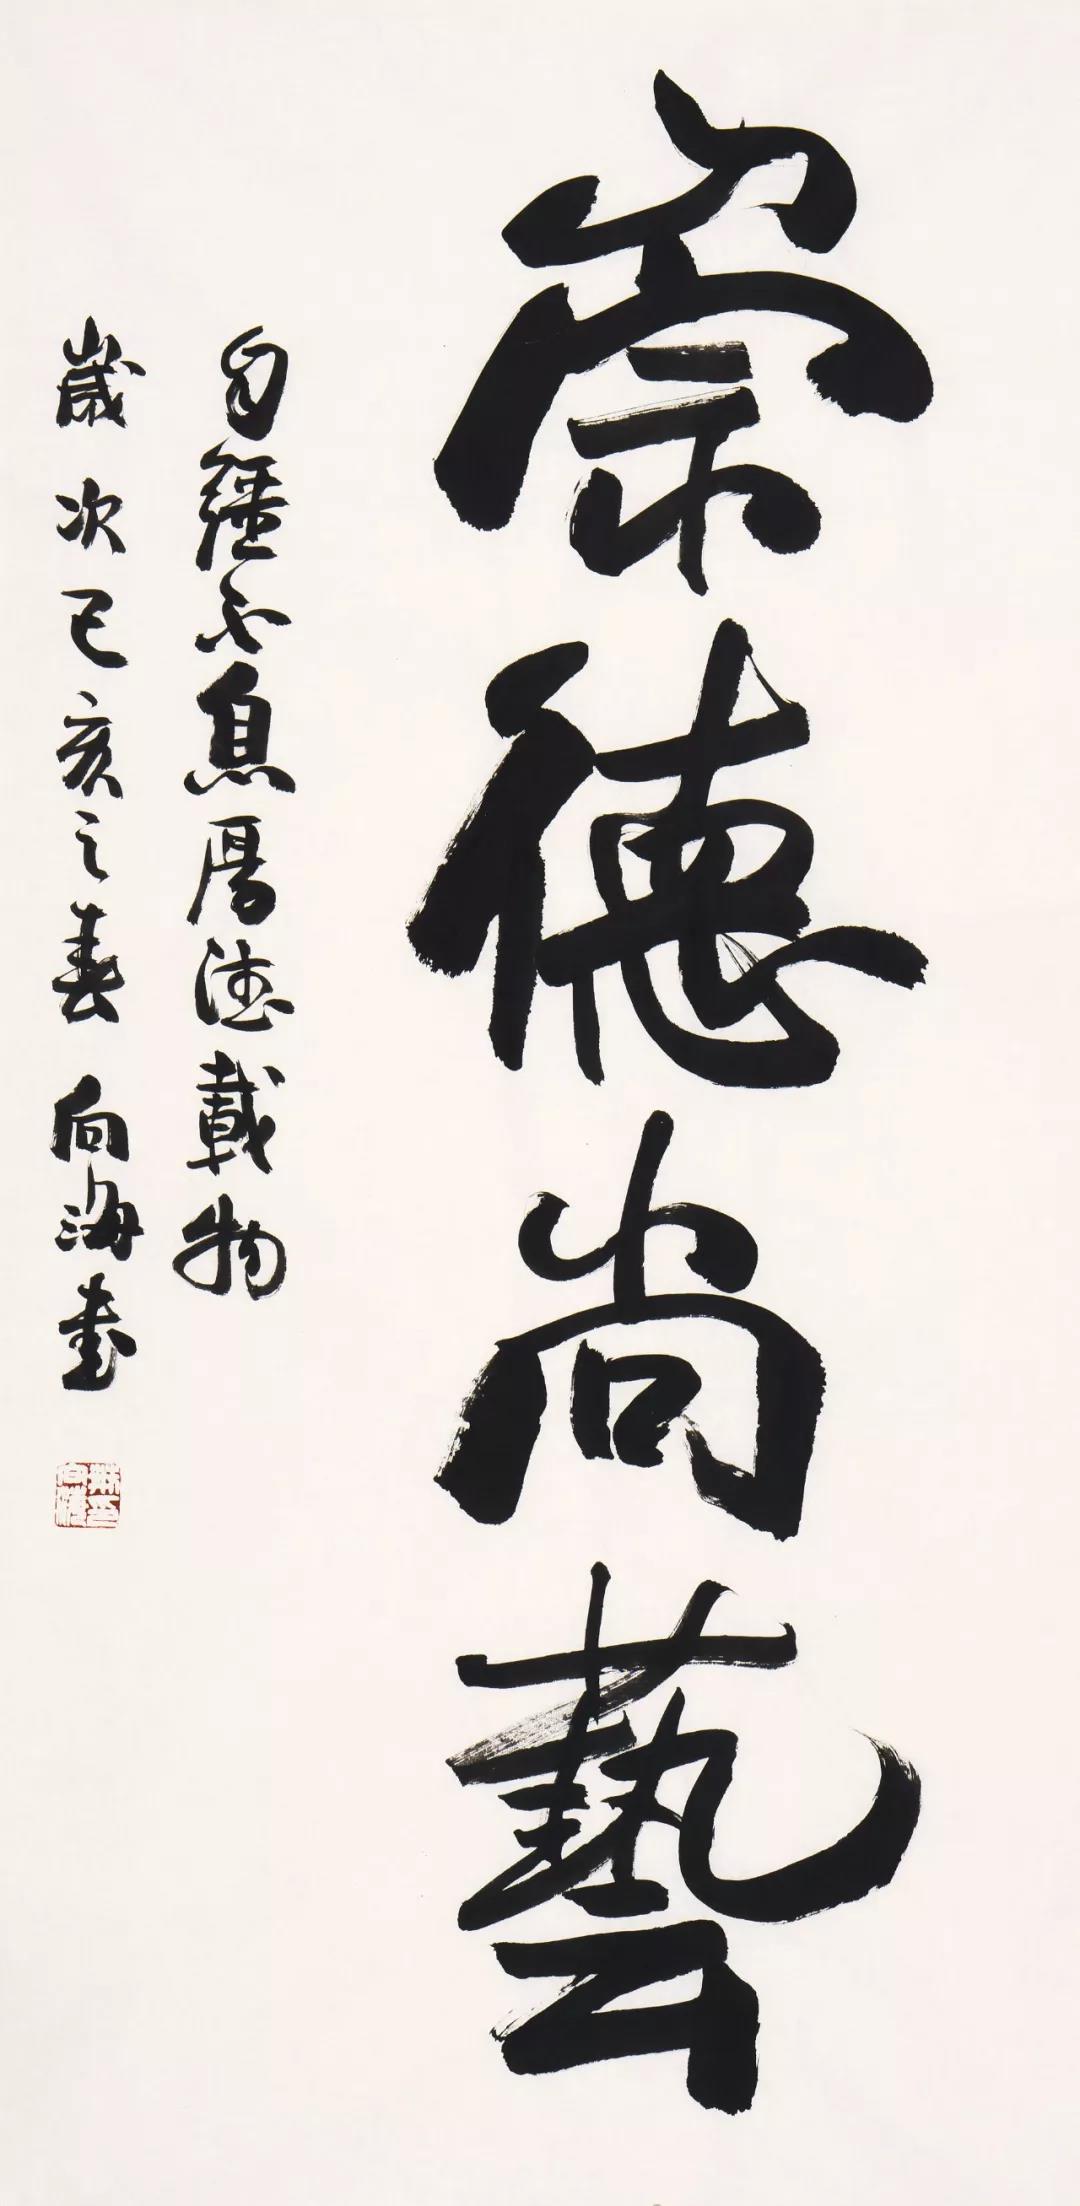 崇德尚藝
自彊不息厚德載物
歲次己亥之春 向海書